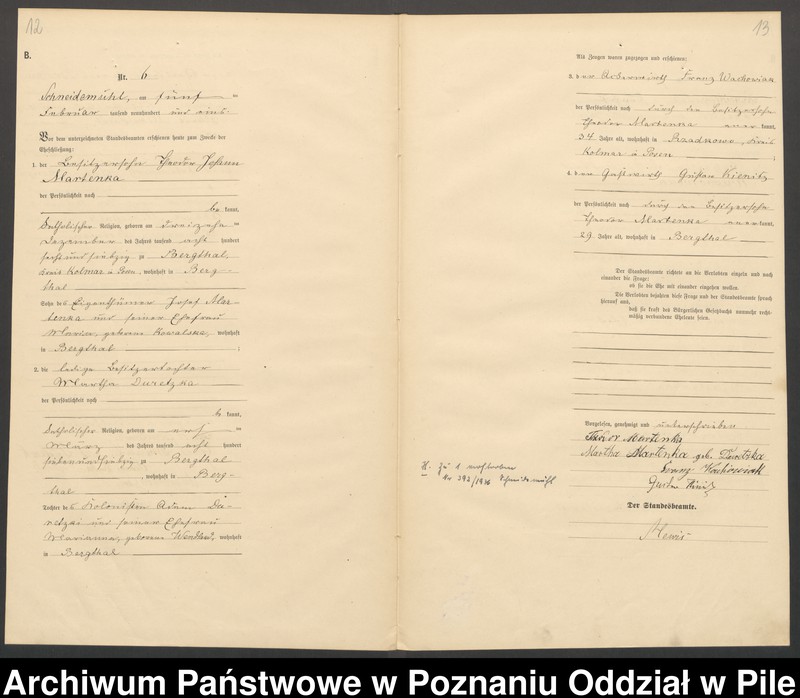 12
B.
Nr. 6
Schneidemühl, am fünf ten
Februar tausend neunhundert und eins
Vor dem unterzeichneten Standesbeamten erschienen heute zum Zwecke der
Eheschließung:
1. der Besitzersohn Theodor Johann
Martenka
der Persönlichkeit nach
be kannt,
katholischer Religion, geboren am dreizehn ten
Dezember des Jahres tausend acht hundert
sechsundsiebzig zu Bergthal,
Kreis Kolmar a Posen, wohnhaft in Berg-
thal
Sohn des Eigenthümer Josef Mar-
tenka und seiner Ehefrau
Maria, geborene Kowalska, wohnhaft
in Bergthal ;
2. die ledige Besitzertochter
Martha Duretzka
der Persönlichkeit nach
be kannt,
katholischer Religion, geboren am
März des Jahres tausend acht hundert
siebenundsiebzig zu Bergthal
, wohnhaft in Berg-
thal
Tochter des Kolonisten Adam Du-
retzki und seiner Ehefrau
Marianna, geborene wohnhaft
in Bergthal
13
Als Zeugen waren zugezogen und erschienen:
3. der Ackerwirth Franz Wachowiak
der Persönlichkeit nach durch den Besitzersohn
Theodor Martenka aner kannt,
34 Jahre alt, wohnhaft in Rzadkowo, Kreis
Kolmar a Posen ;
4. der Gastwirth Gustav Kienitz
der Persönlichkeit nach durch den Besitzersohn
Theodor Martenka aner kannt,
29 Jahre alt, wohnhaft in Bergthal
Der Standesbeamte richtete an die Verlobten einzeln und nach
einander die Frage:
ob sie die Ehe mit einander eingehen wollen.
Die Verlobten bejahten diese Frage und der Standesbeamte sprach
hierauf aus,
daß sie kraft des Bürgerlichen Gesetzbuchs nunmehr recht-
mäßig verbundene Eheleute seien.
Vorgelesen, genehmigt und unterschrieben
Theodor Martenka
Martha Martenka geb. Duretzka
Franz Wachowiak
Gustav Kienitz
Der Standesbeamte.
H. Zu 1 verstorben
Nr 392/1936 Schneidemühl
Archiwum Państwowe w Poznaniu Oddział w Pile